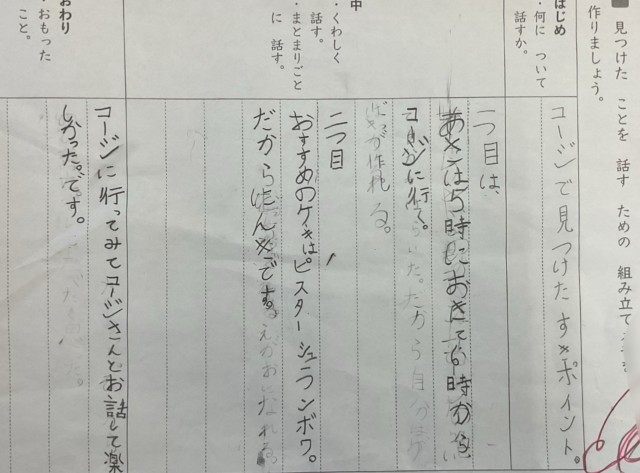 見つけた ことを 話す ための 組み立て
作りましょう。
はじめ
・何に ついて
話すか。
コージで見つけたすてきポイント。
中
・くわしく
話す。
・まとまりごと
に 話す。
一つ目は、
あさは5時におきて6時から
コージに行く。
作れる。
二つ目
おすすめのケーキはピスターシュフランボワ。
だからにんきです。
おわり
・おもった
こと。
コージに行ってみてコージさんとお話して楽
しかった。です。